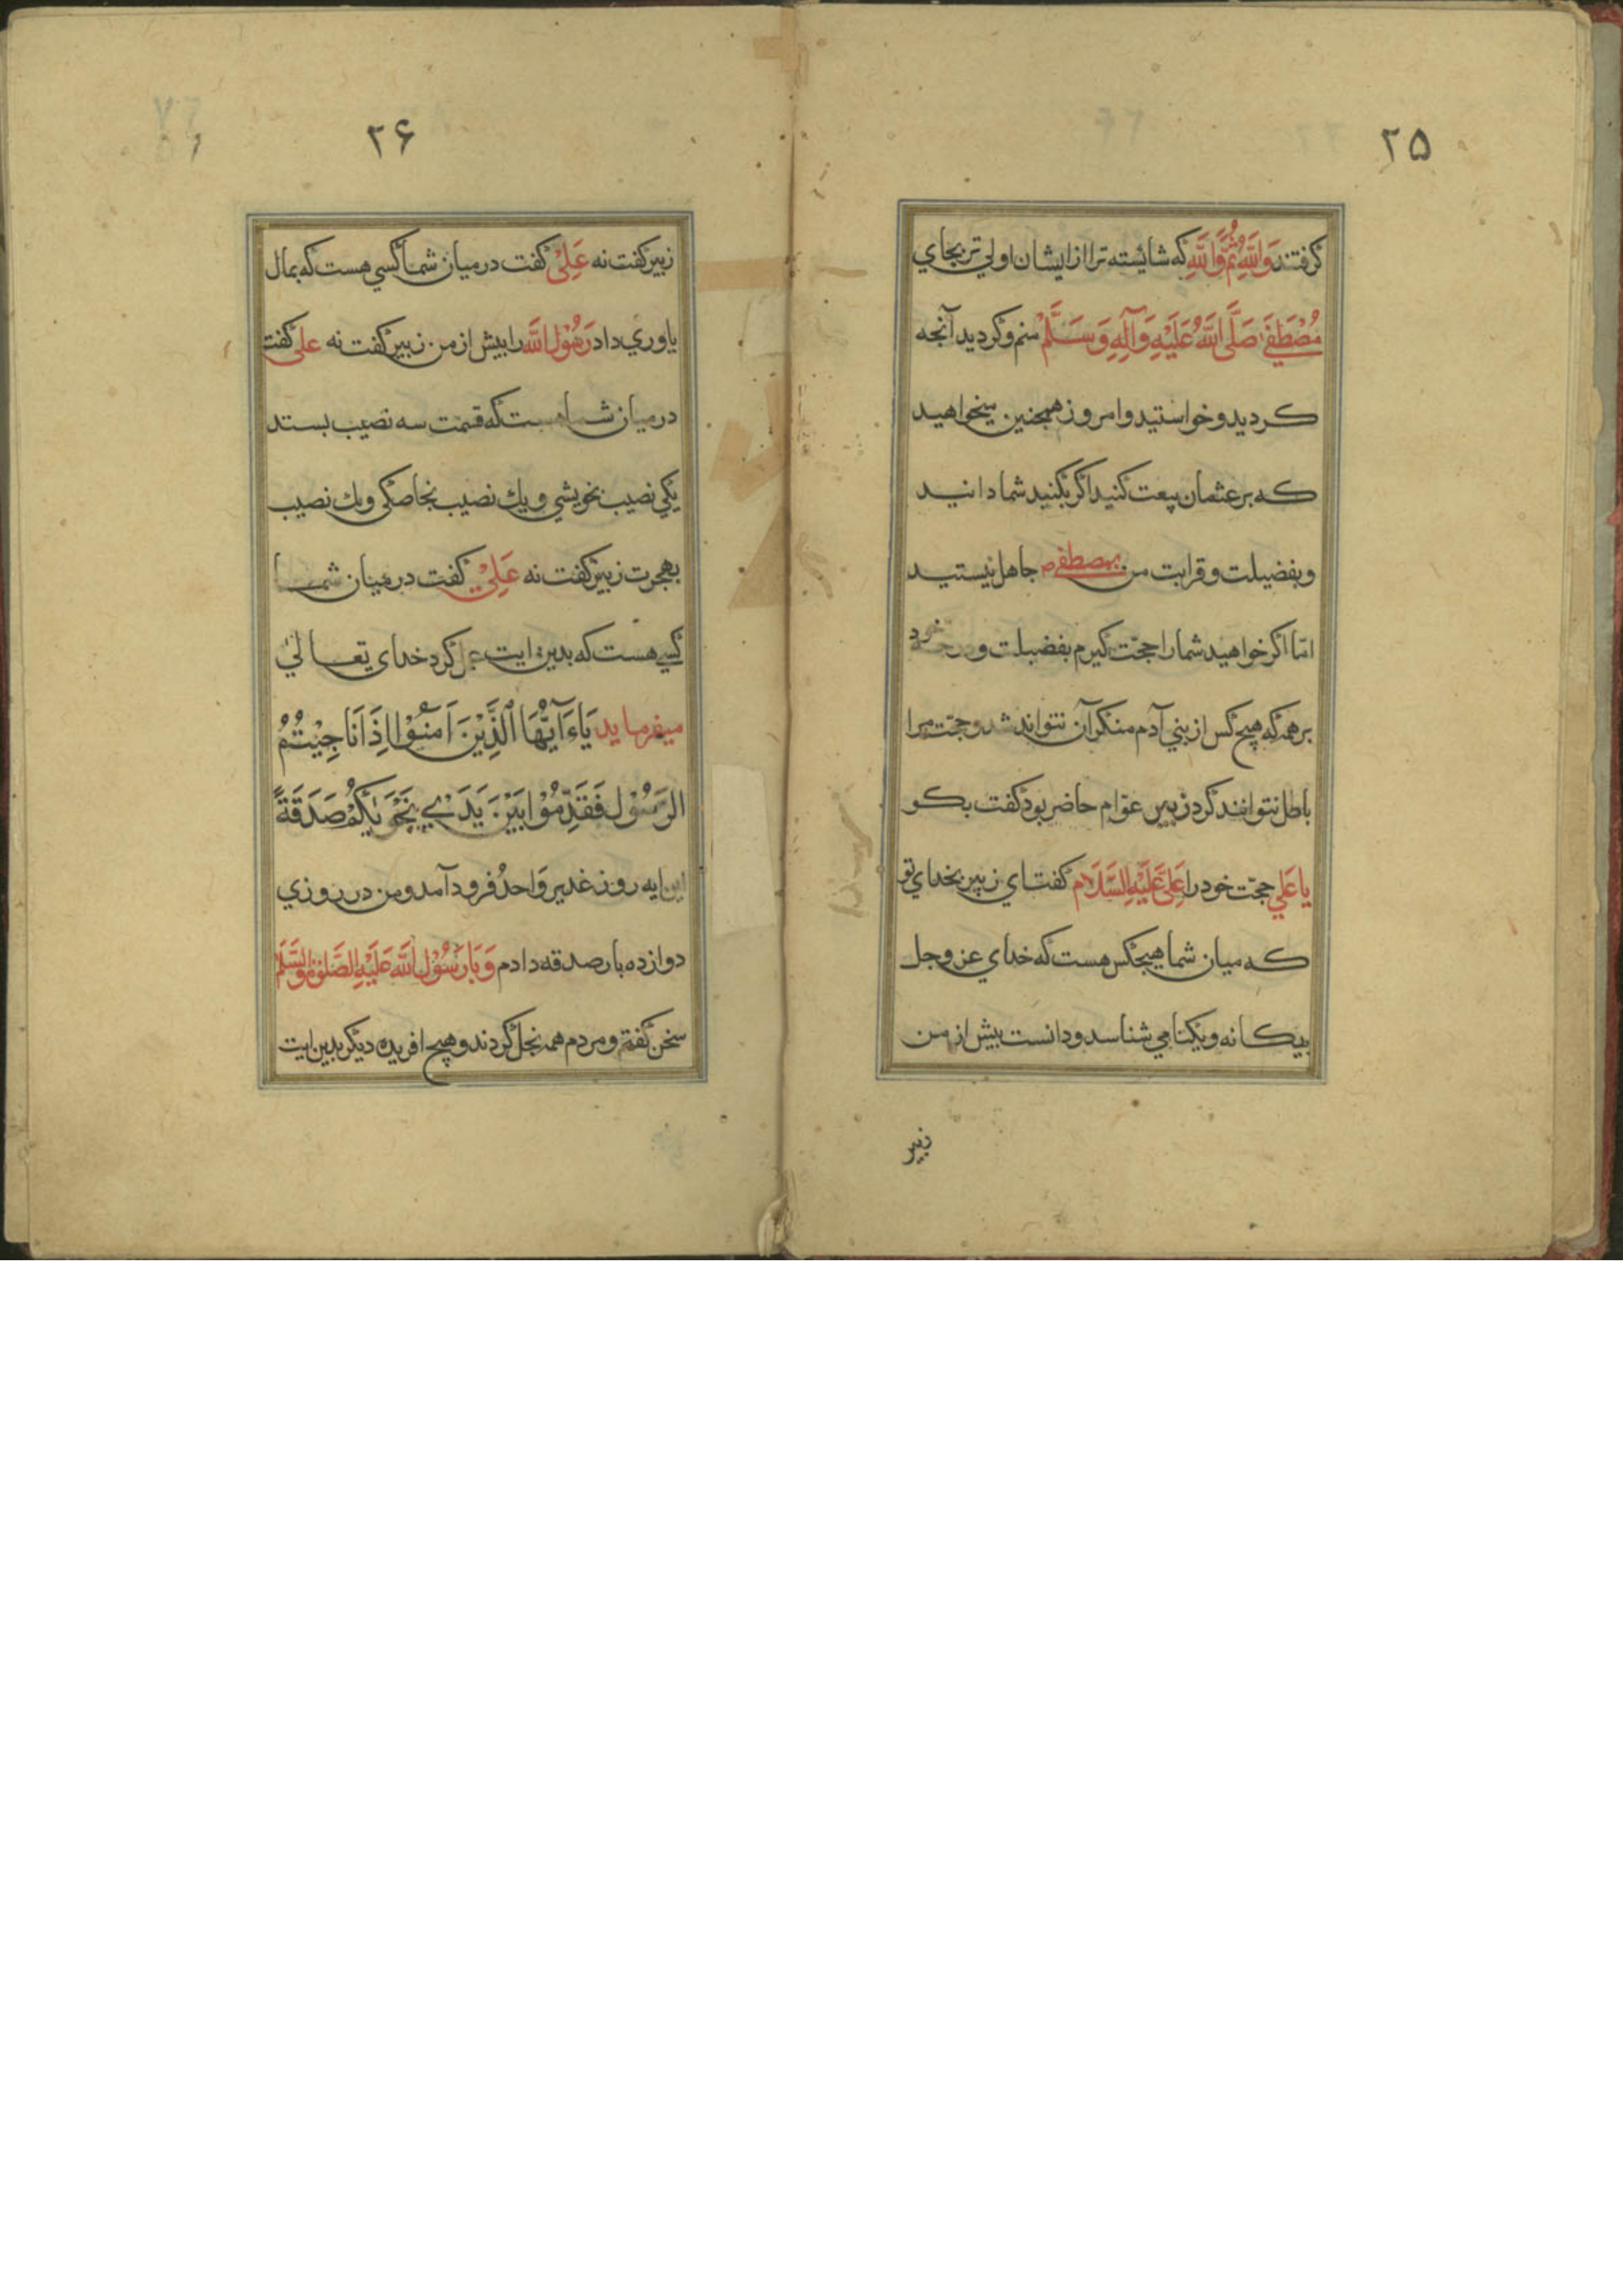 ۲۵
گرفتند وَاللّٰهِ ثُمَّ وَاللّٰهِ که شائسته تر از ایشان اولي تر بجاي
مُصْطَفَی صَلَّی اللّٰهُ عَلَیْهِ وَآلِهِ وَسَلَّمْ منم و کردید آنچه
کردید و خواستید و امروز همچنین میخواهید
که بر عثمان بیعت کنید اکر بکنید شما دانید
و بفضیلت و قرابت من بمصطفی ص جاهل نیستید
امّا اکر خواهید شما را حجّت کیرم بفضیلت و خود
بر همه که هیچ کس از بني آدم منکر آن نتواند شد و حجّت مرا
باطل نتوانند کرد زبیر عوّام حاضر بود کفت بکو
یا عَلي حجّت خود را عَلِی عَلَیْهِ السَّلَام کفت اي زبیر بخداي تو
که میان شما هیچکس هست که خداي عز و جل
بیکانه و یکتا مي شناسد و دانست بیش از من
زبیر
۲۶
زبیر کفت نه عَلِيْ کفت در میان شما کسي هست که بمال
یاوري داد رَسُوْل اللّٰه را بیش از من زبیر کفت نه علی کفت
در میان شما هست که قسمت سه نصیب بستد
یکي نصیب بخویشي و یك نصیب بخاصکی و یك نصیب
بهجرت زبیر کفت نه عَلِيْ کفت در میان شما
کسي هست که بدین ایت عمل کرد خدای تعالیٰ
میفرماید یَاءَآیُّهَا الَّذِیْنَ اَمَنُوْا اِذَا نَاجَیْتُمُ
الرَسُوْل فَقَدِّمُوْا بَیْنَ یَدَيْ نَجْوٰیکُمْ صَدَقَةً
این ایه روز غدیر وَاحدُ فرود آمد و من در روزي
دوازده بار صدقه دادم وَ بَا رَسُوْل اللّٰه عَلَیْهِ الصَّلٰوةُ وَالسَّلَام
سخن کفتم و مردم همه بخل کردند و هیچ افریده دیکر بدین ایت